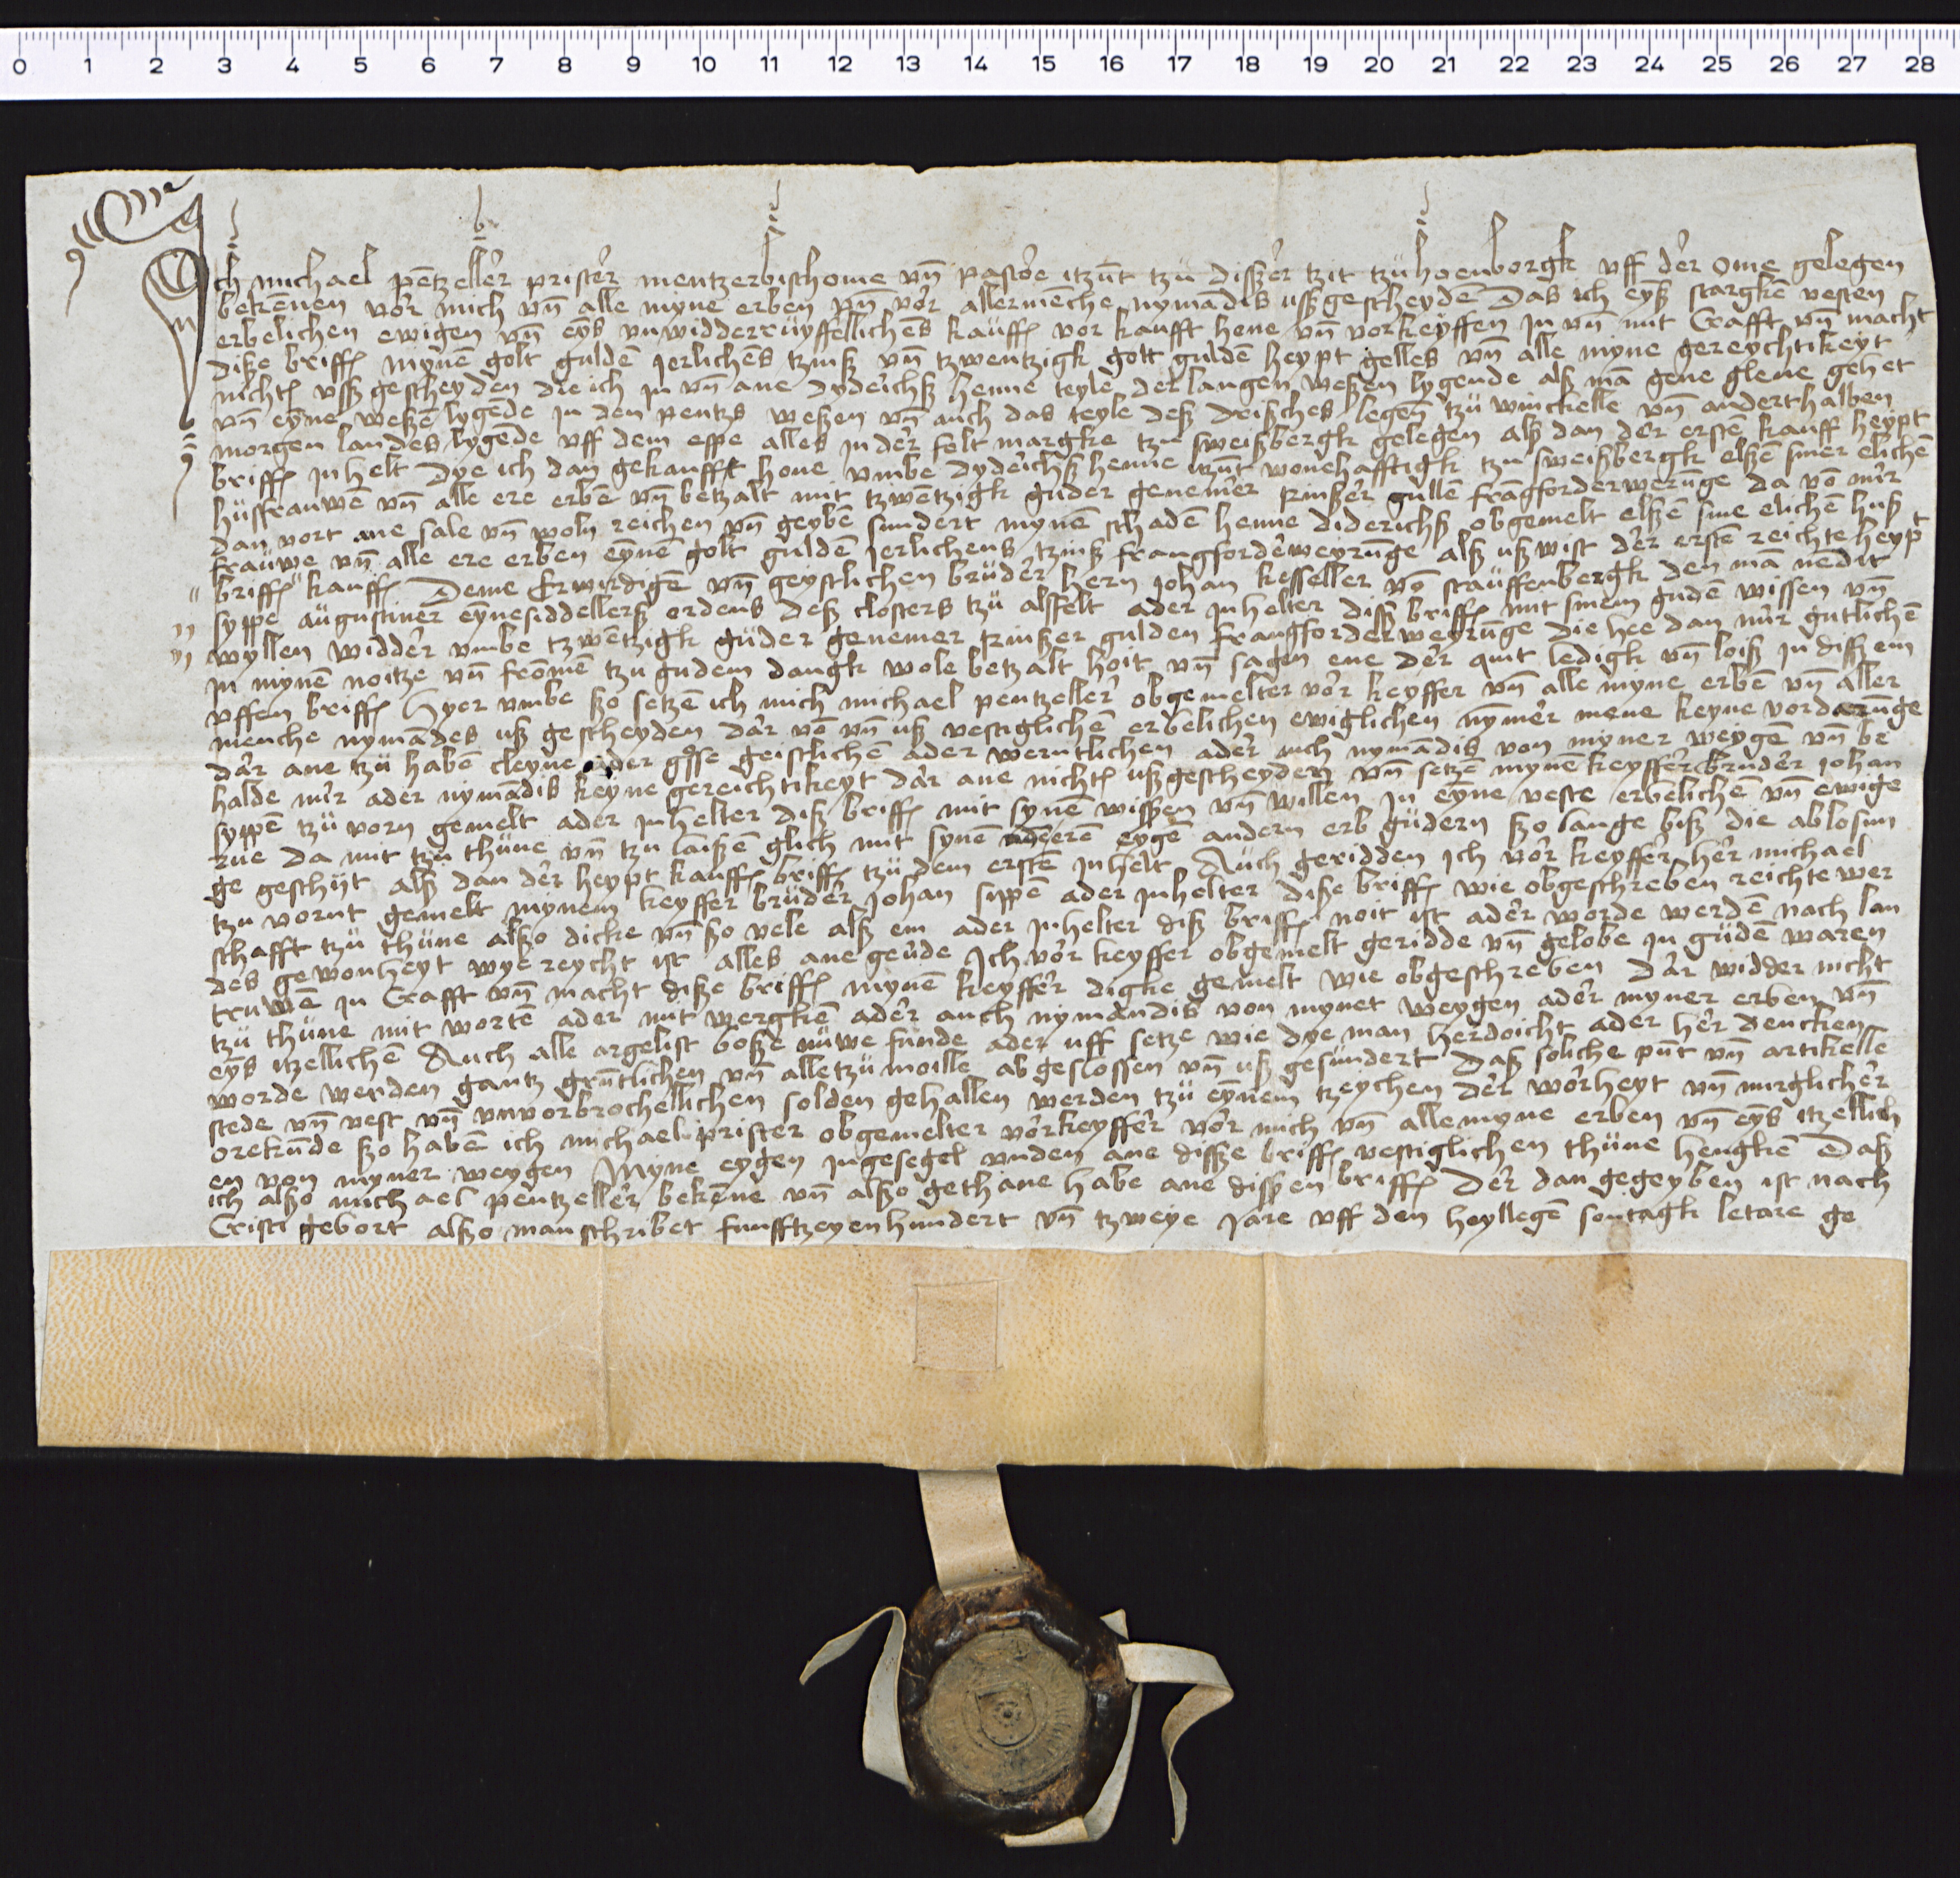 0 1 2 3 4 5 6 7 8 9 10 11 12 13 14 15 16 17 18 19 20 21 22 23 24 25 26 27 28
Ich michael pētzeller prister mentzerbischome vn̄ pastore itzūt tzü disser tzit tzü hoenborgk vff der ome gelegen
bekēnen vor mich vn̄ alle myne erben vn̄ vor allermenche nymādis usß gescheydē Das ich eynß stargkē vesten
erbelichen ewigen vn̄ eyns vnwidderrüyffellichens kaüff vor kaufft hene vn̄ vorkeyffen in vn̄ mit Crafft vn̄ macht
diße briff myne golt guldē Jerlichens tzinß vn̄ tzwentzigk golt guldē heypt gelles vn̄ alle myne gereychtikeyt
nicht usß gescheyden die ich in vn̄ ane dyderichß henne teyle der langen weßen lygende alß mā gene glene gehet
vn̄ eyne weßē lygēde in den pentzs weßen vn̄ auch das teyle deß drisches legen tzü winckelle vn̄ anderthalben
morgen landes lygēde vff dem espe alles in der felt margke tzu sweißbergk gelegen alß dan der erste kauff heypt
briff inhelt Dye ich dan gekaufft hone vmbe dyderichß henne itzūt wonehafftigk tzu sweißbergk elßē siner elichē
hüsfrauwē vn̄ alle ere erbē vn̄ betzalt mit tzwētzigk guder genemer rinßer gullē frāgforderwerūnge da vō mir
dan vort ane sale vn̄ woln reichen vn̄ geybē sundert mynē schadē henne diderichß obgemelt elßē sine elichē huß
frauwe vn̄ alle ere erben eynē golt guldē Jerlichens tzinß frangforderweyrūnge alß ußwist der erstē reichte heyp
briff kauff Deme Erwirdigē vn̄ geystlichen brüder hern Johan kesseller vō stauffenbergk den mā nēdit
syppe augustiner eynesiddellerß ordens deß closters tzü alsfelt ader inhelter disß briff mit sinem gudē wissen vn̄
wyllen widder vmbe tzwētzigk güder genemer rinßer gulden frangforderweyrūnge die hee dan mir gutlichē
in mynē noitze vn̄ fromē tzu gudem dangk wole betzalt hoit vn̄ sagen ene der quit ledigk vn̄ loiß in dissem
vffen briff Hyer vmbe ßo setzē ich mich michael pentzeller obgemelter vor keyffer vn̄ alle myne erbē vn̄ aller
menche nymādes uß gescheyden dar vō vn̄ uß vestiglichē erbelichen ewiglichen nymer mene keyne vorderūnge
dar ane tzü habē cleyne ader große geistlichē ader werntlichen ader auch nymādis von myner weygē vn̄ be
halde mir ader nymādis keyne gereichtikeyt dar ane nicht ußgescheyden vn̄ setzē mynē keyffer bruder Johan
syppē tzü vorn gemelt ader inhelter diß briff mit synē wissen vn̄ willen in eyne veste erbelichē vn̄ ewige
rue da mit tzu thüne vn̄ tzu laißē glich mit synē anderē eygē andern erb güdern ßo lange biß die ablosun
ge geschyt alß dan der heypt kauff briff tzü dem erstē inhelt Auch geridden Ich vor keyffer her michael
tzu vornt gemelt mynem keyffer brüder Johan sippē ader inhelter diße briff wie obgeschreben reichte wer
schafft tzü thüne alßo dicke vn̄ ßo vele alß em ader inhelter diß briff noit ist ader worde werdē nach lan
des gewonheyt wye reycht ist alles ane geude Ich vor keyffer obgemelt geridde vn̄ gelobe in güdē waren
truwē in Crafft vn̄ macht diße briff mynē keyffer digke gemelt wie obgeschreben dar widder nicht
tzü thüne mit wortē ader mit wergkē ader auch nymandis von mynet weygen ader myner erben vn̄
eyns itzellichē Auch alle argelist boße nüwe funde ader uff setze wie dye man herdoicht ader her dencken
worde werden gantz grūtlichen vn̄ alletzümoille abgeslossen vn̄ uß gesundert Daß soliche pūt vn̄ artikelle
stede vn̄ vest vn̄ vnvorbrochellichen solden gehallen werden tzü eynem tzeychen der worheyt vn̄ mirglicher
orekūde ßo habē ich michael prister obgemelter vorkeyffer vor mich vn̄ alle myne erben vn̄ eyns itzellich
en von myner weygen Myne eygen ingesegel vnden ane disße briff vestiglichen thüne hengkē Daß
ich alßo michael pentzeller bekēne vn̄ alßo gethane habe ane dissen briff Der dan gegeyben ist nach
Cristi gebort alßo man schribet funfftzeyenhundert vn̄ tzweye Jare vff den heyllegē sontagk letare ge